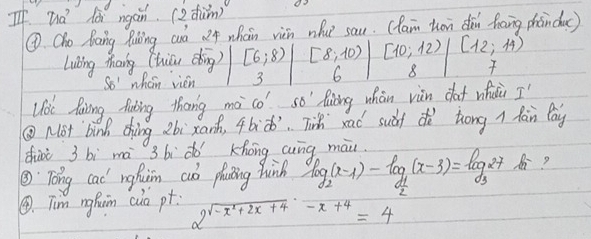 III. Trả lời ngắn. (2 điểm)
① Cho bảng lương của 24 nhân viên như sau. (làm tròn đến hàng phần chục)
Lương tháng (triệu đồng) | [6;8) | [8;10) | [10;12) | [12;14)
Số nhân viên 3 6 8 7
Ước lượng lương tháng mà có số lượng nhân viên đạt nhiều I'
② Một bình đựng 2 bi xanh, 4 bi đỏ. Tính xác suất để trong 1 lần lấy
được 3 bi mà 3 bi đó không cùng màu.
③ Tổng các nghiệm của phương trình log₂(x-1) - log_{1/2}(x-3) = log₃27 là ?
④. Tìm nghiệm của pt:
2^{√(-x²+2x+4) · -x+4} = 4